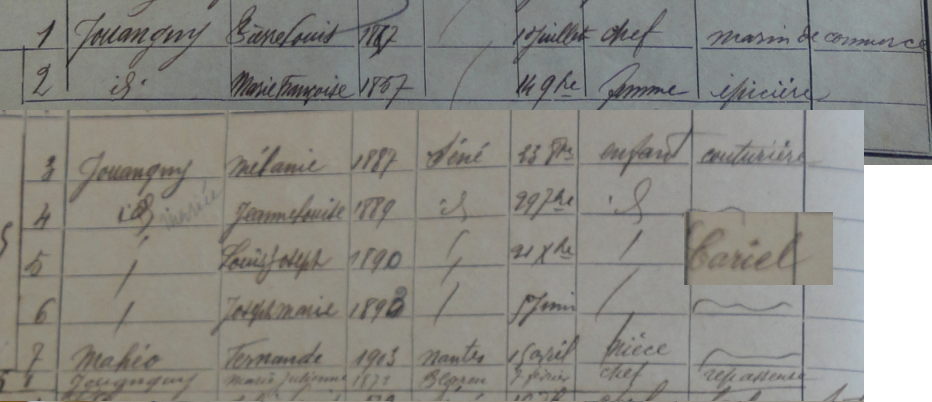 1 Jouanguy Pierre Louis 1857 / 10 juillet chef marin de commerce
2 id Marie Françoise 1857 / 14 9bre femme épicière
3 Jouanguy Mélanie 1887 Séné 23 8bre enfant couturière
4 id mariée Jeanne Louise 1889 id 29 7bre id
5 / Louis Joseph 1890 / 21 Xbre / Cariel
6 / Joseph marie 1893 / 5 juin /
7 Mahéo Fernande 1903 nantes 15 avril nièce
1 Jouanguy Marie Julienne 1872 février chef repasseuse